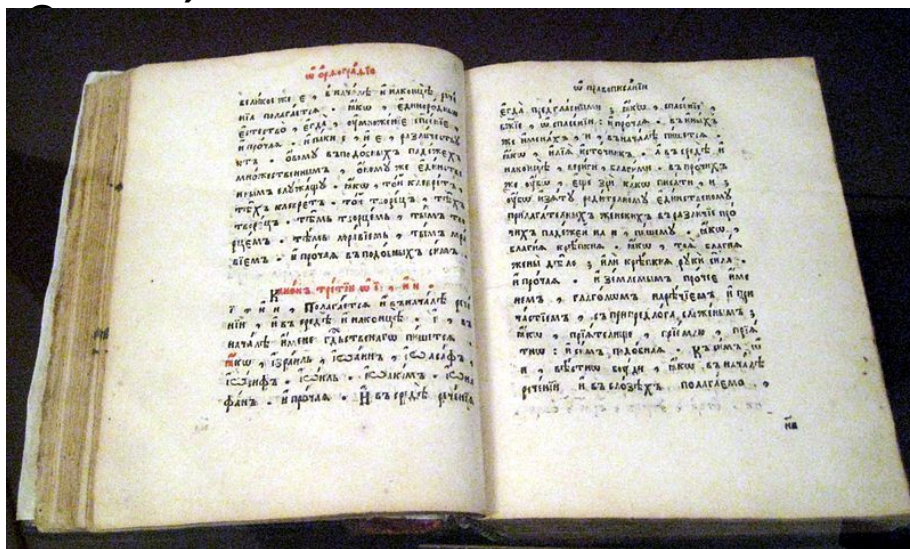 ѿ орѳографїи
великое же є , в началѣ и наконцѣ рече
нїѧ полагаетсѧ . ꙗкѡ , єдинородный
єстество , єгда , оумножение
и прочаѧ . и є , и е , различествꙋ
ютъ . овомꙋ въ подобныхъ падежехъ
множественнымъ , овомꙋ же єдинстве
ннымъ слꙋжащꙋ . ꙗкѡ , той клевретъ ,
тѣхъ клєвретъ . той творецъ , тѣхъ
творєцъ . тѣмъ творцемъ , тымъ тво
рцємъ .
вїємъ . и прочаѧ въ подобныхъ симъ .
Канонъ третїй ѿ ї : , и и .
ї , и и , Полагаетсѧ и въ началѣ рече
нїй , и въ средѣ и наконцѣ . ї , въ
началѣ имене пишетсѧ .
ꙗкѡ , їзраиль , їѡаннъ , їѡасафъ ,
їѡсифъ . їѡиль . їѡакімъ . їѡна
ѳанъ . и прочаѧ . И въ средѣ речєнїѧ
ѿ правописанїи
єгда предгласнымъ ; ꙗкѡ , спасенїе ,
бжїе , ѡ спасенїи : и прочаѧ . въ иныхъ
же именахъ , и , въ началѣ пишетсѧ .
ꙗкѡ , илїѧ источникъ . А въ средѣ и
наконцѣ , вериги , благими . въ прочихъ
же оубѡ , єще зри какѡ писати , и з
оубѡ изѧтꙋ родителномꙋ єдинственомꙋ
прилагателныхъ женскихъ въ различїе про
чихъ падежей на и , пишемꙋ . ꙗкѡ ,
благиѧ крѣпкиѧ . ꙗкѡ , тоѧ благиѧ
жены дѣло ; или крѣпкиѧ рꙋки сила .
и прочаѧ . и взємлемымъ прочее име
немъ , глаголѡмъ нарѣчїемъ и при
частїемъ , съ при предлога сложенымъ ;
ꙗкѡ , прїѧтелище , прїемлю , прїѧ
тнѡ : и симъ подобнаѧ .
и , вѣстно бꙋди , ꙗкѡ въ началѣ
реченїй и въ слозѣхъ полагаемо ,
нв